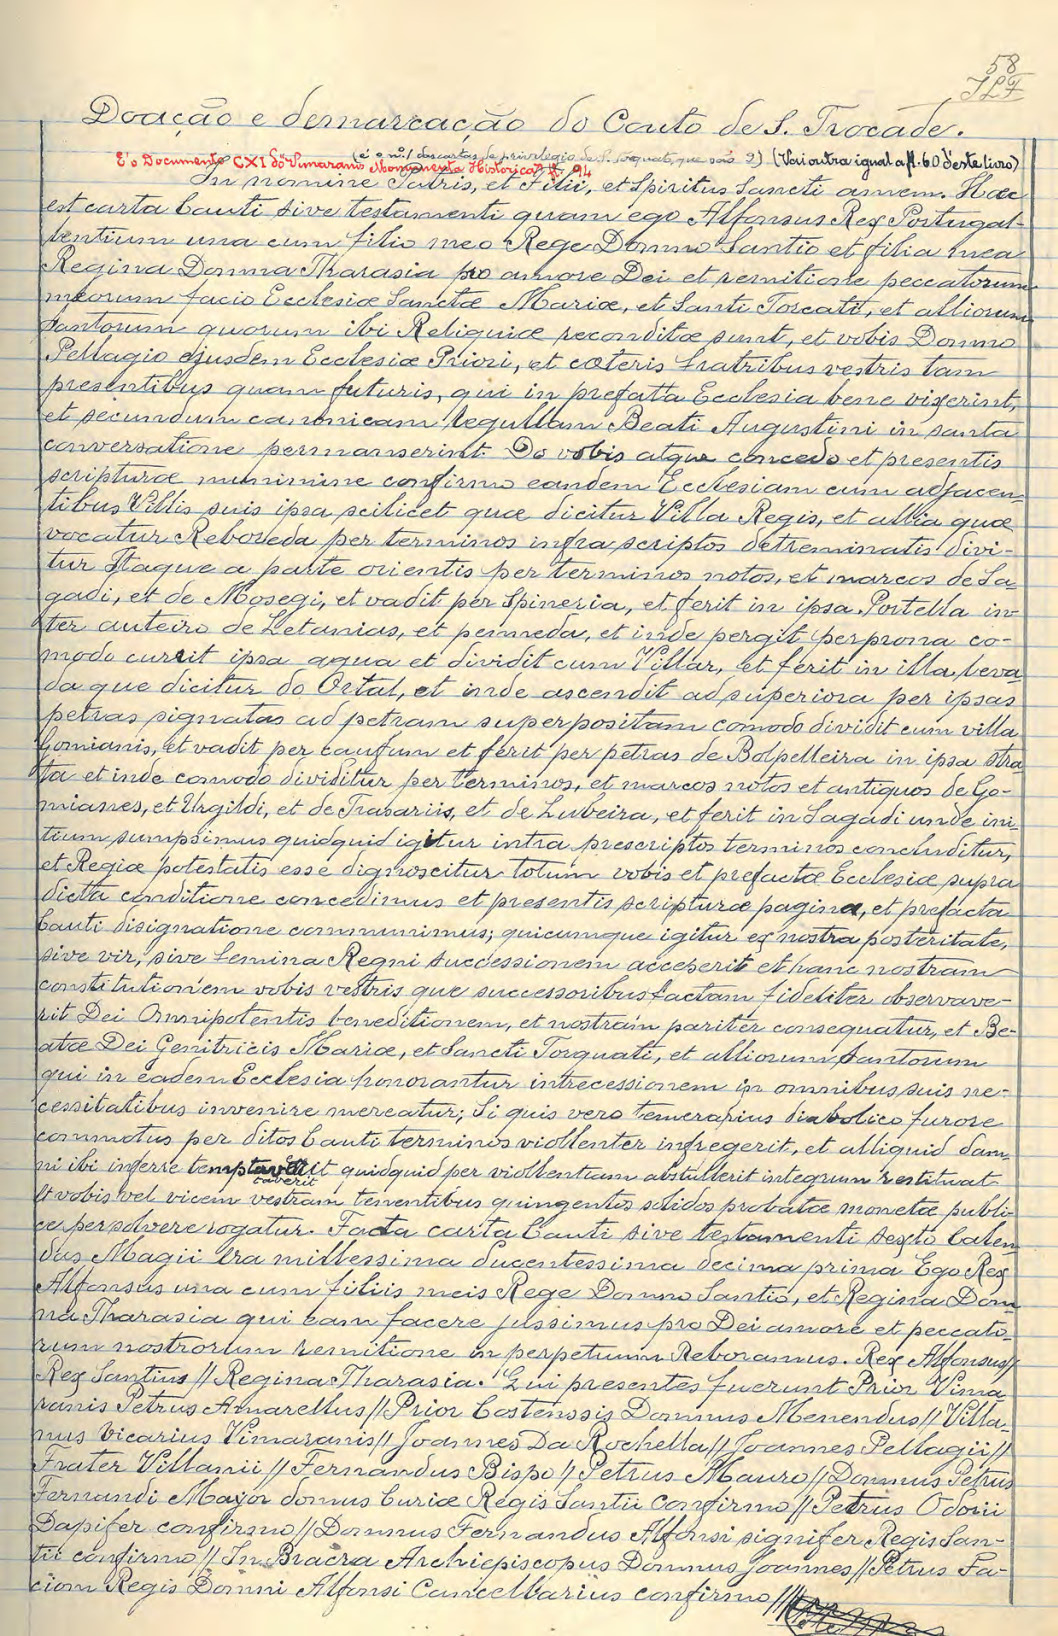 58
Doação e demarcação do Couto de S. Trocade.
(é o nº 1 das cartas de privilegio de S. Torquato, que são 2) (Vai outra igual a fl. 60 d'este livro)
É o Documento CXI do "Vimaranis Monumenta Historica" fl. 94
In nomine Patris, et Filii, et Spiritus Sancti amem. Haec
est carta Cauti sive testamenti quam ego Alfonsus Rex Portugal-
lentium una cum filio meo Rege Domno Santio et filia mea
Regina Donna Tharasia pro amore Dei et remitione peccatorum
meorum facio Ecclesiæ Sanctæ Mariæ, et Santi Torcati, et alliorum
Santorum quorum ibi Reliquiæ reconditæ sunt, et vobis Donno
Pellagio ejusdem Ecclesiæ Priori, et cæteris fratribus vestris tam
presentibus quam futuris, qui in prefatta Ecclesia bene vixerint,
et secundum canonicam regullam Beati Augustini in santa
conversatione permanserint. Do vobis atque concedo et presentis
scripturæ munimine confirmo eandem Ecclesiam cum adjacen-
tibus Villis suis ipsa scilicet quæ dicitur Villa Regis, et allia quæ
vocatur Reboveda per terminos infra scriptos detreminatis divi-
tur Itaque a parte orientis per terminos notos, et marcos de Sa-
gadi, et de Mosegi, et vadit per Spineria, et ferit in ipsa Portella in-
ter auteiro de Letanias, et penneda, et inde pergit per prona co-
modo currit ipsa aqua et dividit cum Villar, et ferit in illa leva
da que dicitur do Ortal, et inde ascendit ad superiora per ipsas
petras signatas ad petram superpositam comodo dividit cum villa
Gomianis, et vadit per caufum et ferit per petras de Bolpelleira in ipsa stra
ta et inde comodo dividitur per terminos, et marcos notos et antiquos de Go-
mianes, et Urgildi, et de Trasariis, et de Lubeira, et ferit in Sagadi unde ini-
tium sumpsimus quidquid igitur intra prescriptos terminos concluditur,
et Regiæ potestatis esse dignoscitur totum vobis et prefactæ Ecclesiæ supra
dicta conditione concedimus et presentis scripturæ pagina, et prefacta
Cauti disignatione communimus; quicumque igitur ex nostra posteritate,
sive vir, sive femina Regni successionem acceperit et hanc nostram
constitutionem vobis vestris que successoribus factam fideliter observave-
rit Dei Omnipotentis beneditionem, et nostram pariter consequatur, et Be-
atæ Dei Genitricis Mariæ, et Sancti Torquati, et alliorum Santorum
qui in eadem Ecclesia honorantur intrecessionem in omnibus suis ne-
cessitatibus invenire mereatur; Si quis vero temerarius diabolico furore
commotus per ditos Cauti terminos viollenter infregerit, et alliquid dam
ni ibi inferre temptaverit quidquid per viollentiam abstullerit integrum restituat
caverit
Et vobis vel vicem vestram tenentibus quingentos solidos probatæ monetæ publi-
ce persolvere rogatur. Facta carta Cauti sive testamenti sexto Calen
das Magii Era millessima ducentessima decima prima Ego Rex
Alfonsus una cum filiis meis Rege Donno Santio, et Regina Don
na Tharasia qui eam facere jussimus pro Dei amore et peccato-
rum nostrorum remitione in perpetuum Reboramus. Rex Alfonsus//
Rex Santius // Regina Tharasia. Qui presentes fuerunt Prior Vima
ranis Petrus Amarellus // Prior Costenssis Domnus Menendus // Villa-
nus Vicarius Vimaranis // Joannes Da Rochella // Joannes Pellagii //
Frater Villanii // Fernandus Bispo // Petrus Mauro // Domnus Petrus
Fernandi Mayor domus Curiæ Regis Santii Confirmo // Petrus Odorii
Dapifer confirmo // Domnus Fernandus Alfonsi signifer Regis San-
tii confirmo // In Bracra Archiepiscopus Domnus Joannes // Petrus Fa-
ciom Regis Domni Alfonsi Cancellarius confirmo ///